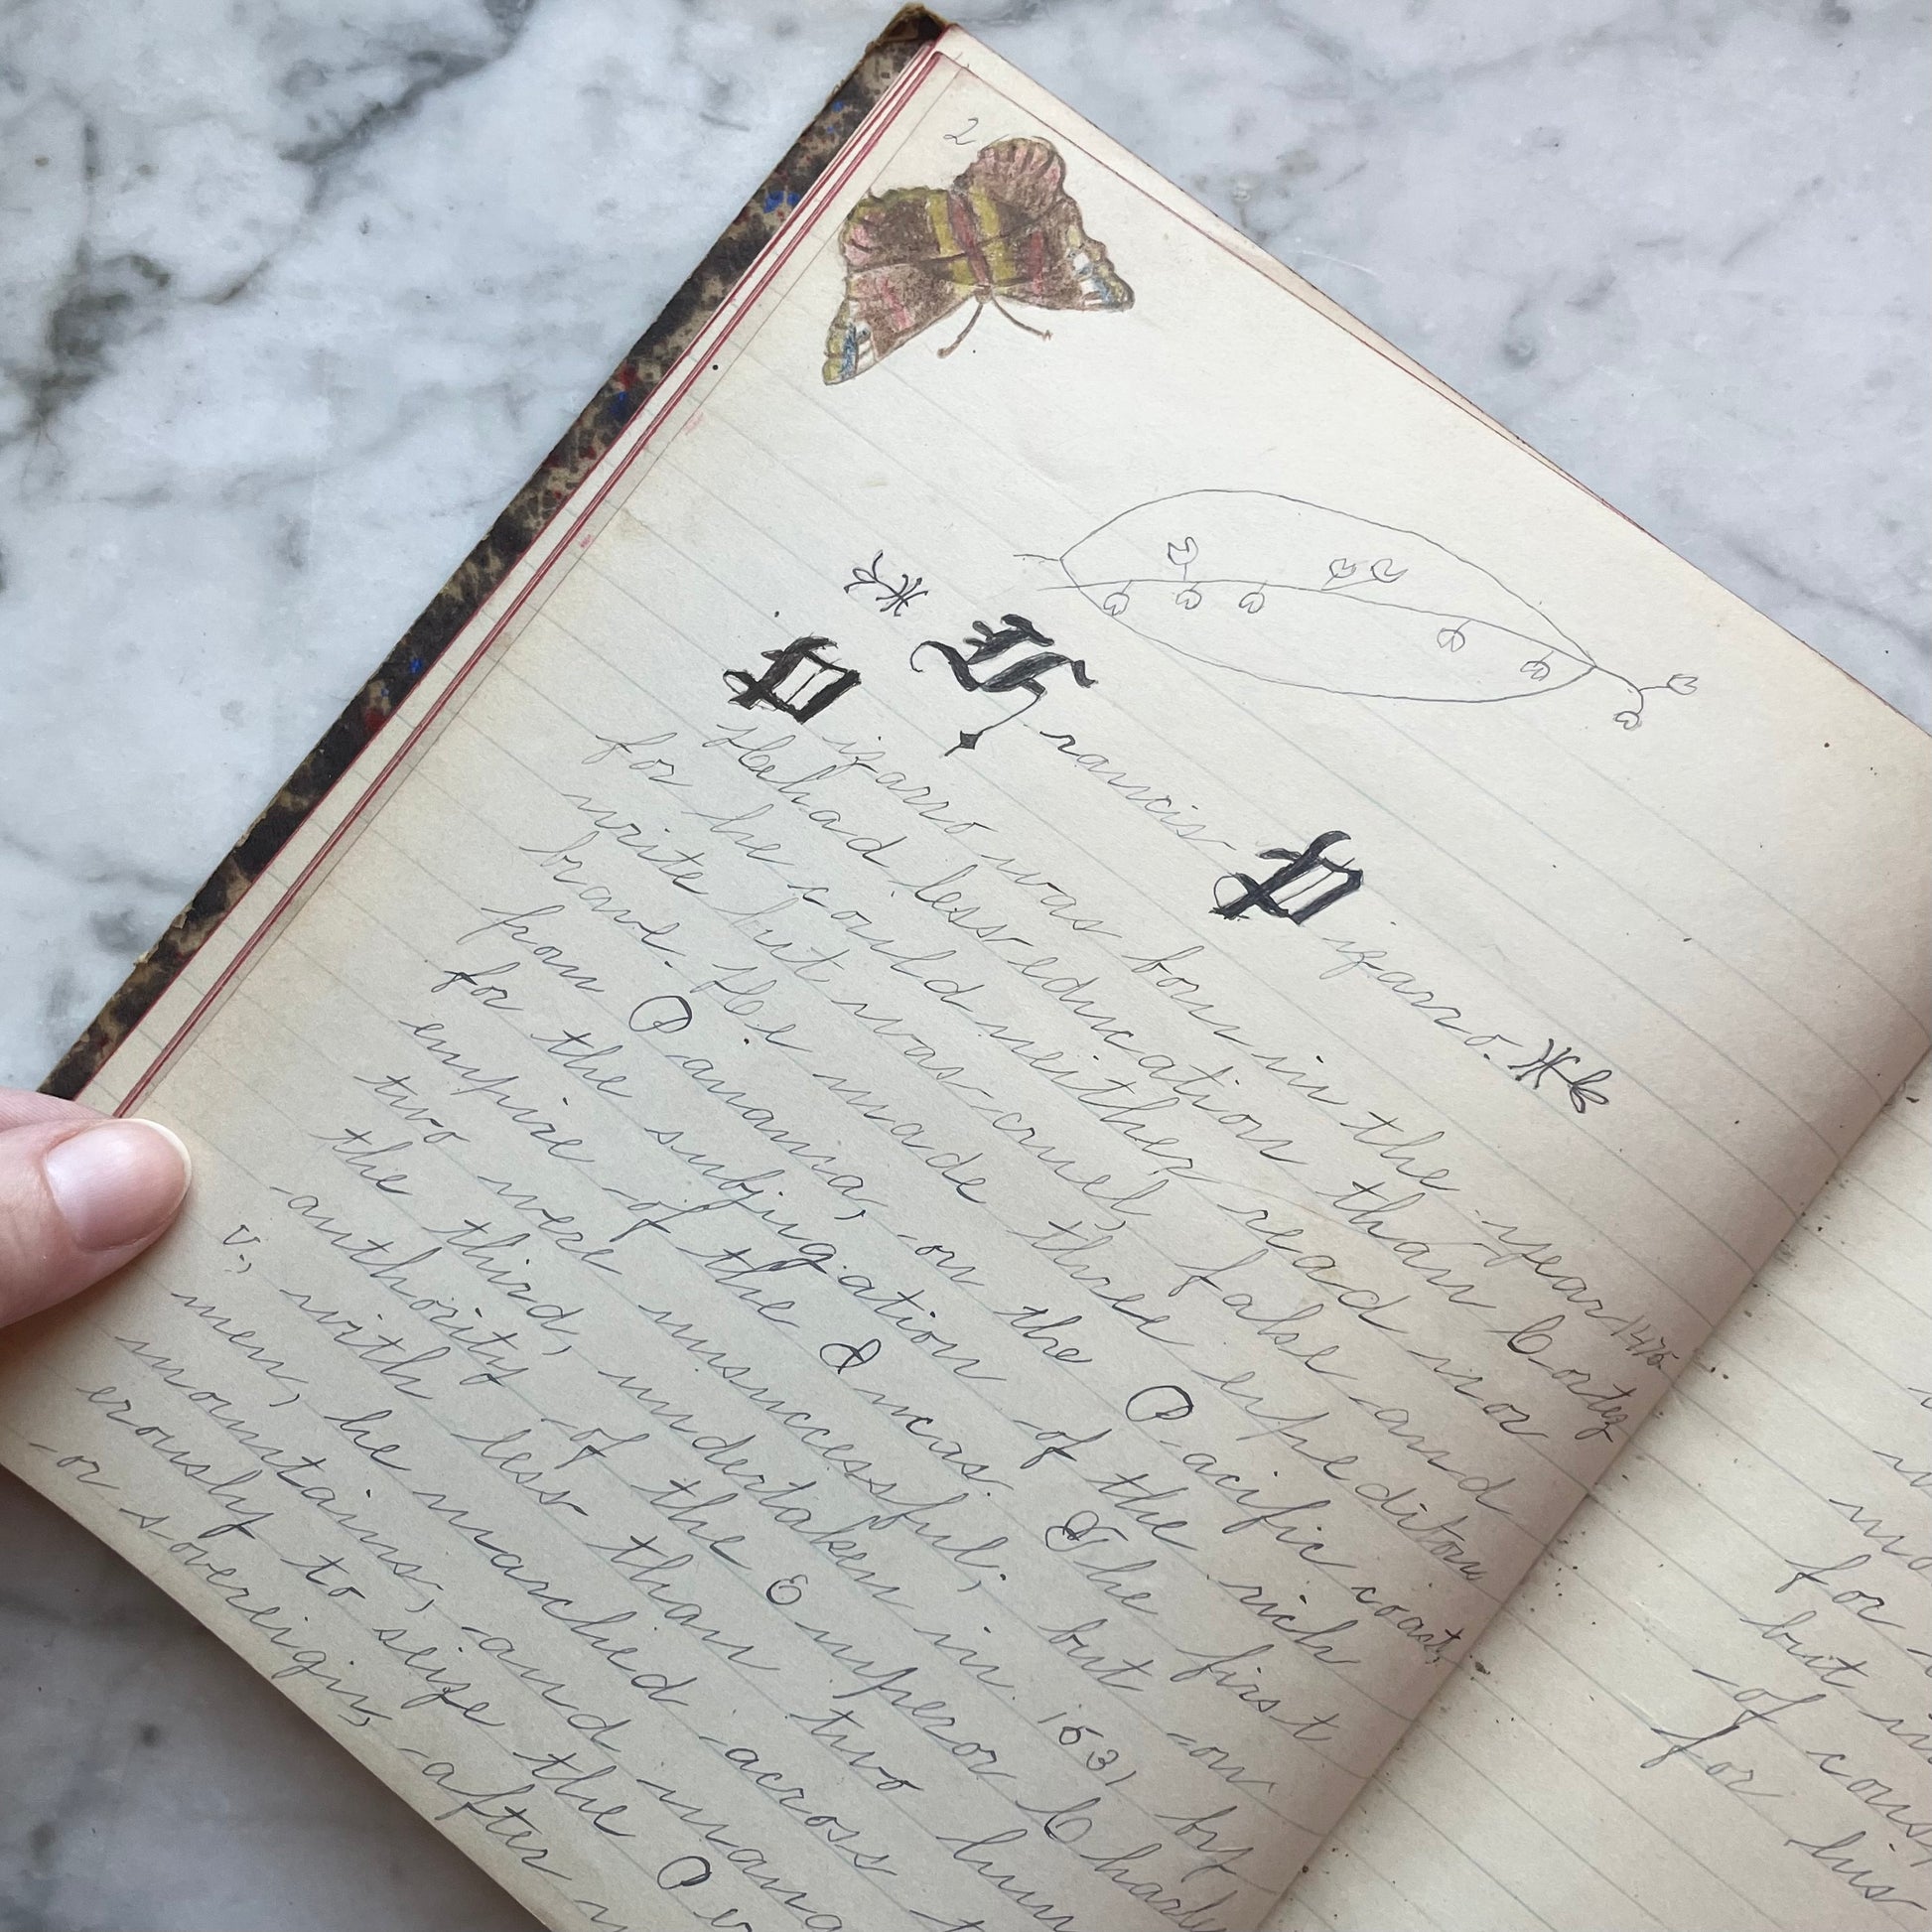 2
Francis Pizarro.
Pizarro was born in the year 1476
He had less education than Cortez
for he could neither read nor
write but was cruel, false and
brave. He made three expeditons
from Panama, on the Pacific coast,
for the subjugation of the rich
empire of the Incas. The first
two were unsuccessful; but on
the third, undertaken in 1531 by
authority of the Emperor Charles
V., with less than two hun
men, he marched across t
mountains, and mana
erously to seize the Per
or sovereign, after
of cou
for his
for
but in